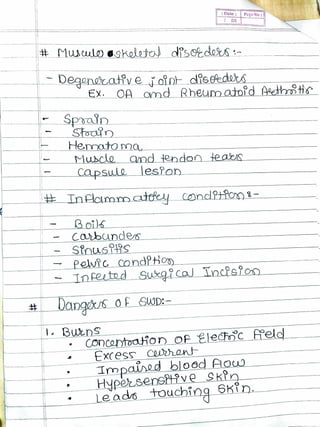 Date Page No
# Musculo skeletal disorders:-
- Degenerative joint disorders
Ex. OA and Rheumatoid Arthritis
- Sprain
- Strain
- Hematoma
- Muscle and tendon tears
- Capsule lesion
# Inflammatory conditions:-
- Boils
- Carbuncles
- Sinusitis
- Pelvic condition
- Infected Surgical Incision
# Dangers of SWD:-
1. Burns
• Concentration of Electric field
• Excess current
• Impaired blood flow
• Hypersensitive skin
• Leads touching skin.